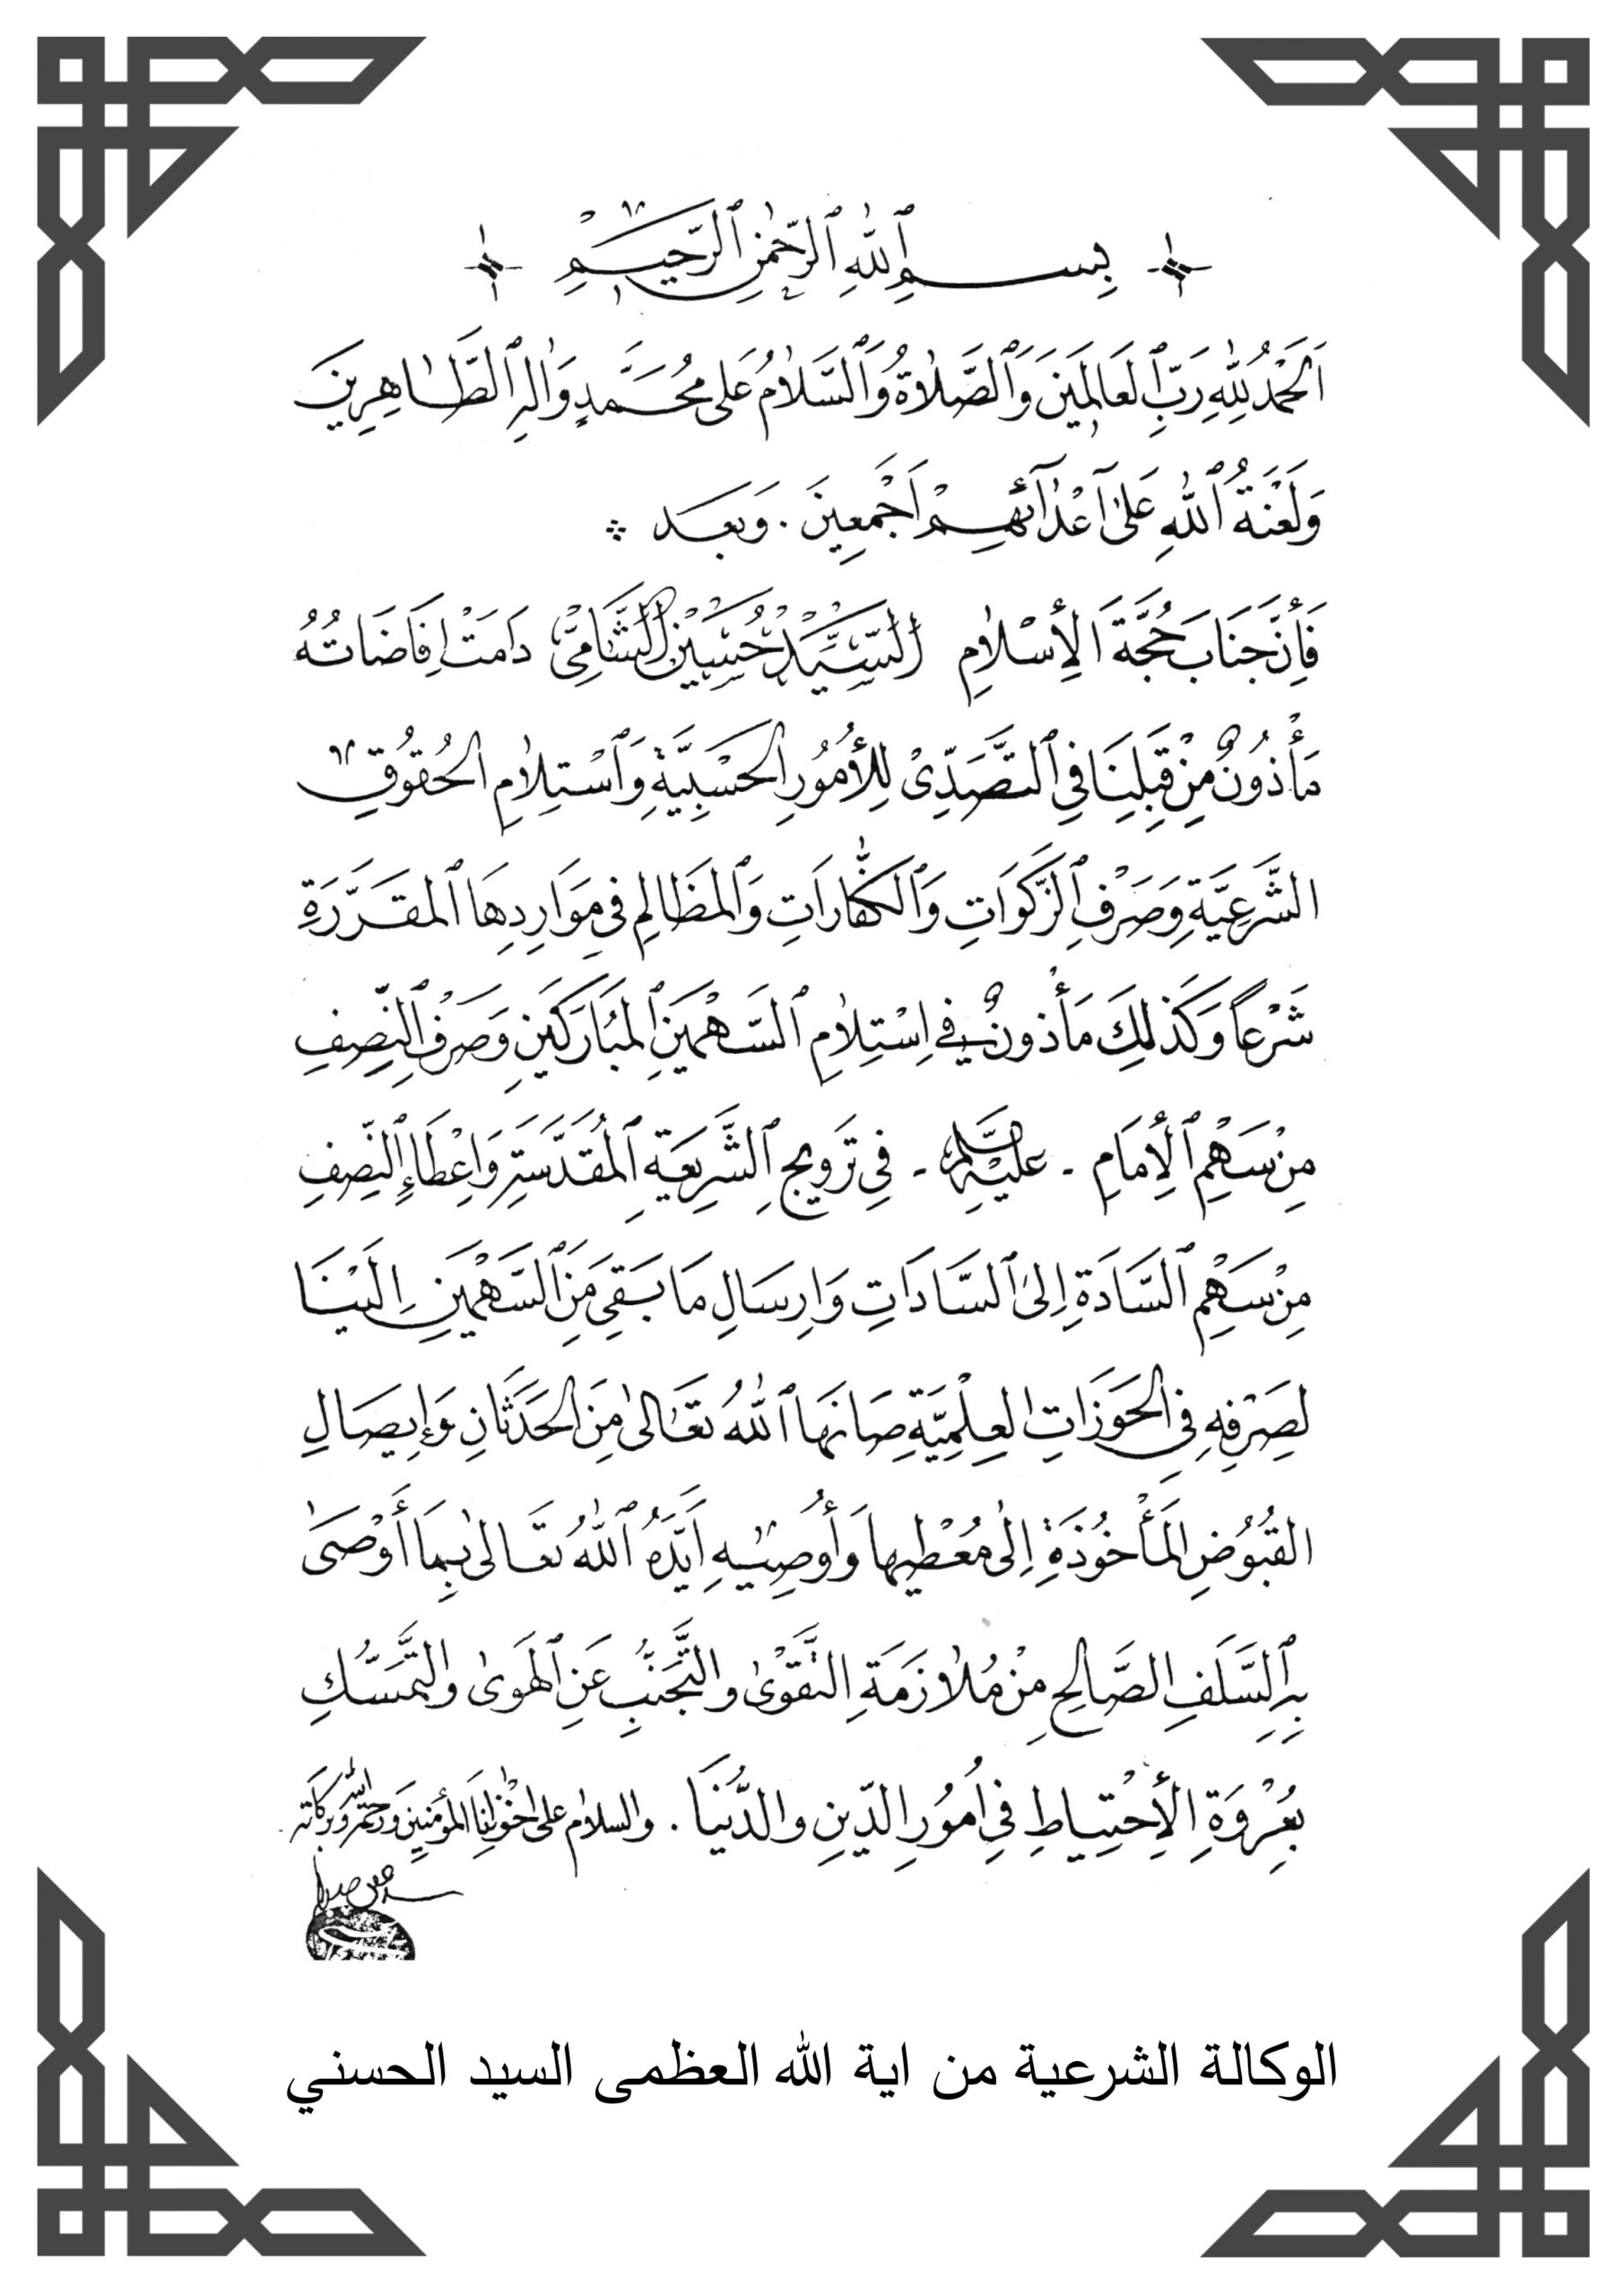 بِسْمِ ٱللّٰهِ ٱلرَّحْمٰنِ ٱلرَّحِيْمِ
اَلْحَمْدُ لِلّٰهِ رَبِّ ٱلْعَالَمِيَنَ وَٱلصَّلاٰةُ وَٱلسَّلاٰمُ عَلى مُحَمَّدٍ وَالِهِ ٱلطَّاهِرِينَ
وَلَعْنَةُ ٱللّٰهِ عَلىٰ اَعْدٰآئِهِمْ اَجْمَعِينَ . وَبَعَد
فَأِنَّ جَنَابَ حُجَّةَ الأِسْلاٰمِ السَّيِّدْ حُسَيْن الشَّامِىّْ دَامَتْ اِفَاضَاتُهُ
مَأْذُونٌ مِنْ قِبَلِنَا فِي ٱلتَّصَدّىْ لِلأُمُورِ الحَسْبِيَّةِ وَٱسْتِلاٰمِ الحُقُوُقِ
الشَّرعِيَّةِ وَصَرْفِ ٱلزَّكَوَاتِ وَٱلكَفّٰارَاتِ وَٱلمَظَالِمِ فى مَوَارِدِهَا ٱلمقَرَّرَةِ
شَرْعاً وَكَذلِكَ مَأْذونٌ فى اِسْتِلاٰمِ ٱلسَّهْمَينِ ٱلمُبَارَكَينِ وَصَرْفِ ٱلنِّصِفِ
مِنْ سَهْمِ ٱلأِمَامِ - عليه السلم - فِي تَرَويجِ ٱلشَّرِيعَةِ ٱلمُقَدَّسَةِ وَاِعْطَاءِ ٱلنِّصِفِ
مِنْ سَهْمِ ٱلسَّادَةِ اِلىٰ ٱلسَّادَاتِ وَارِسَالِ مَا بَقِىَ مَنِ ٱلسَّهْمَينِ اِلَيْنَا
لِصَرْفِهِ فِي الحَوَزَاتِ العِلْمِيَّةِ صَانَهَا ٱللّٰهُ تَعَالىٰ مِنَ الحَدَثَانِ وَاِيصَالِ
القُبُوُضِ المَأْخُوُذَةِ اِلىٰ مُعْطِيها وَأُوصِيٰهِ اَيَّدَهُ ٱللّٰهُ تَعَالىٰ بِمَا أَوْصَىٰ
بِهِ ٱلسَّلَفِ الصَّالِحِ مِنْ مُلاٰزَمَةِ التَّقَوْىٰ والتَّجَنُّبِ عَنِ ٱلهَوىٰ والتَّمَسُّكِ
بِعُرْوَةِ الأِحْتِيٰاطِ فِي اُمُوَرِ الدّينِ والدُّنيَا . والسلاٰم عَلى اخْوٰانِنَا المؤمنينَ وَرحمة اللّٰه وَبركَاته
الوكالة الشرعية من اية الله العظمى السيد الحسني